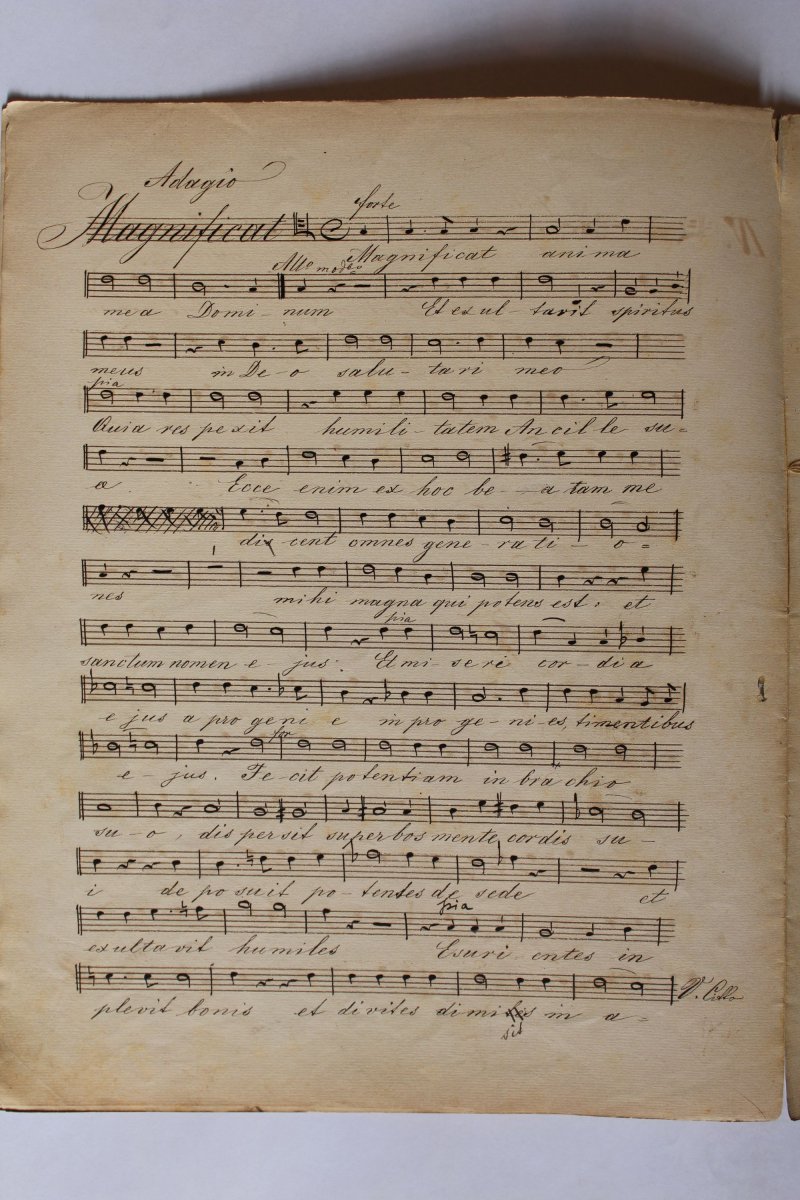 Adagio
forte
Magnificat
Magnificat anima
Allo modto
mea Domi-num Et exul-tavit spiritus
meus in De-o salu-tari meo
pia
Quia res pexit humili-tatem Ancille su=
a. Ecce enim ex hoc be-atam me
dis-cent omnes gene-rati-o=
nes mihi magna qui potens est, et
pia
sanctum nomen e-jus. Et mi-seri cor-dia
ejus a progeni e in proge-ni-es, timentibus
for
e-jus. Fe-cit potentiam in bra chio
su-o, dispersit superbos mente cordis su-
i deposuit po-tentes de sede et
pia
exultavit humiles Esuri entes in
plevit bonis et divites dimi in a-
sit
V. Citto